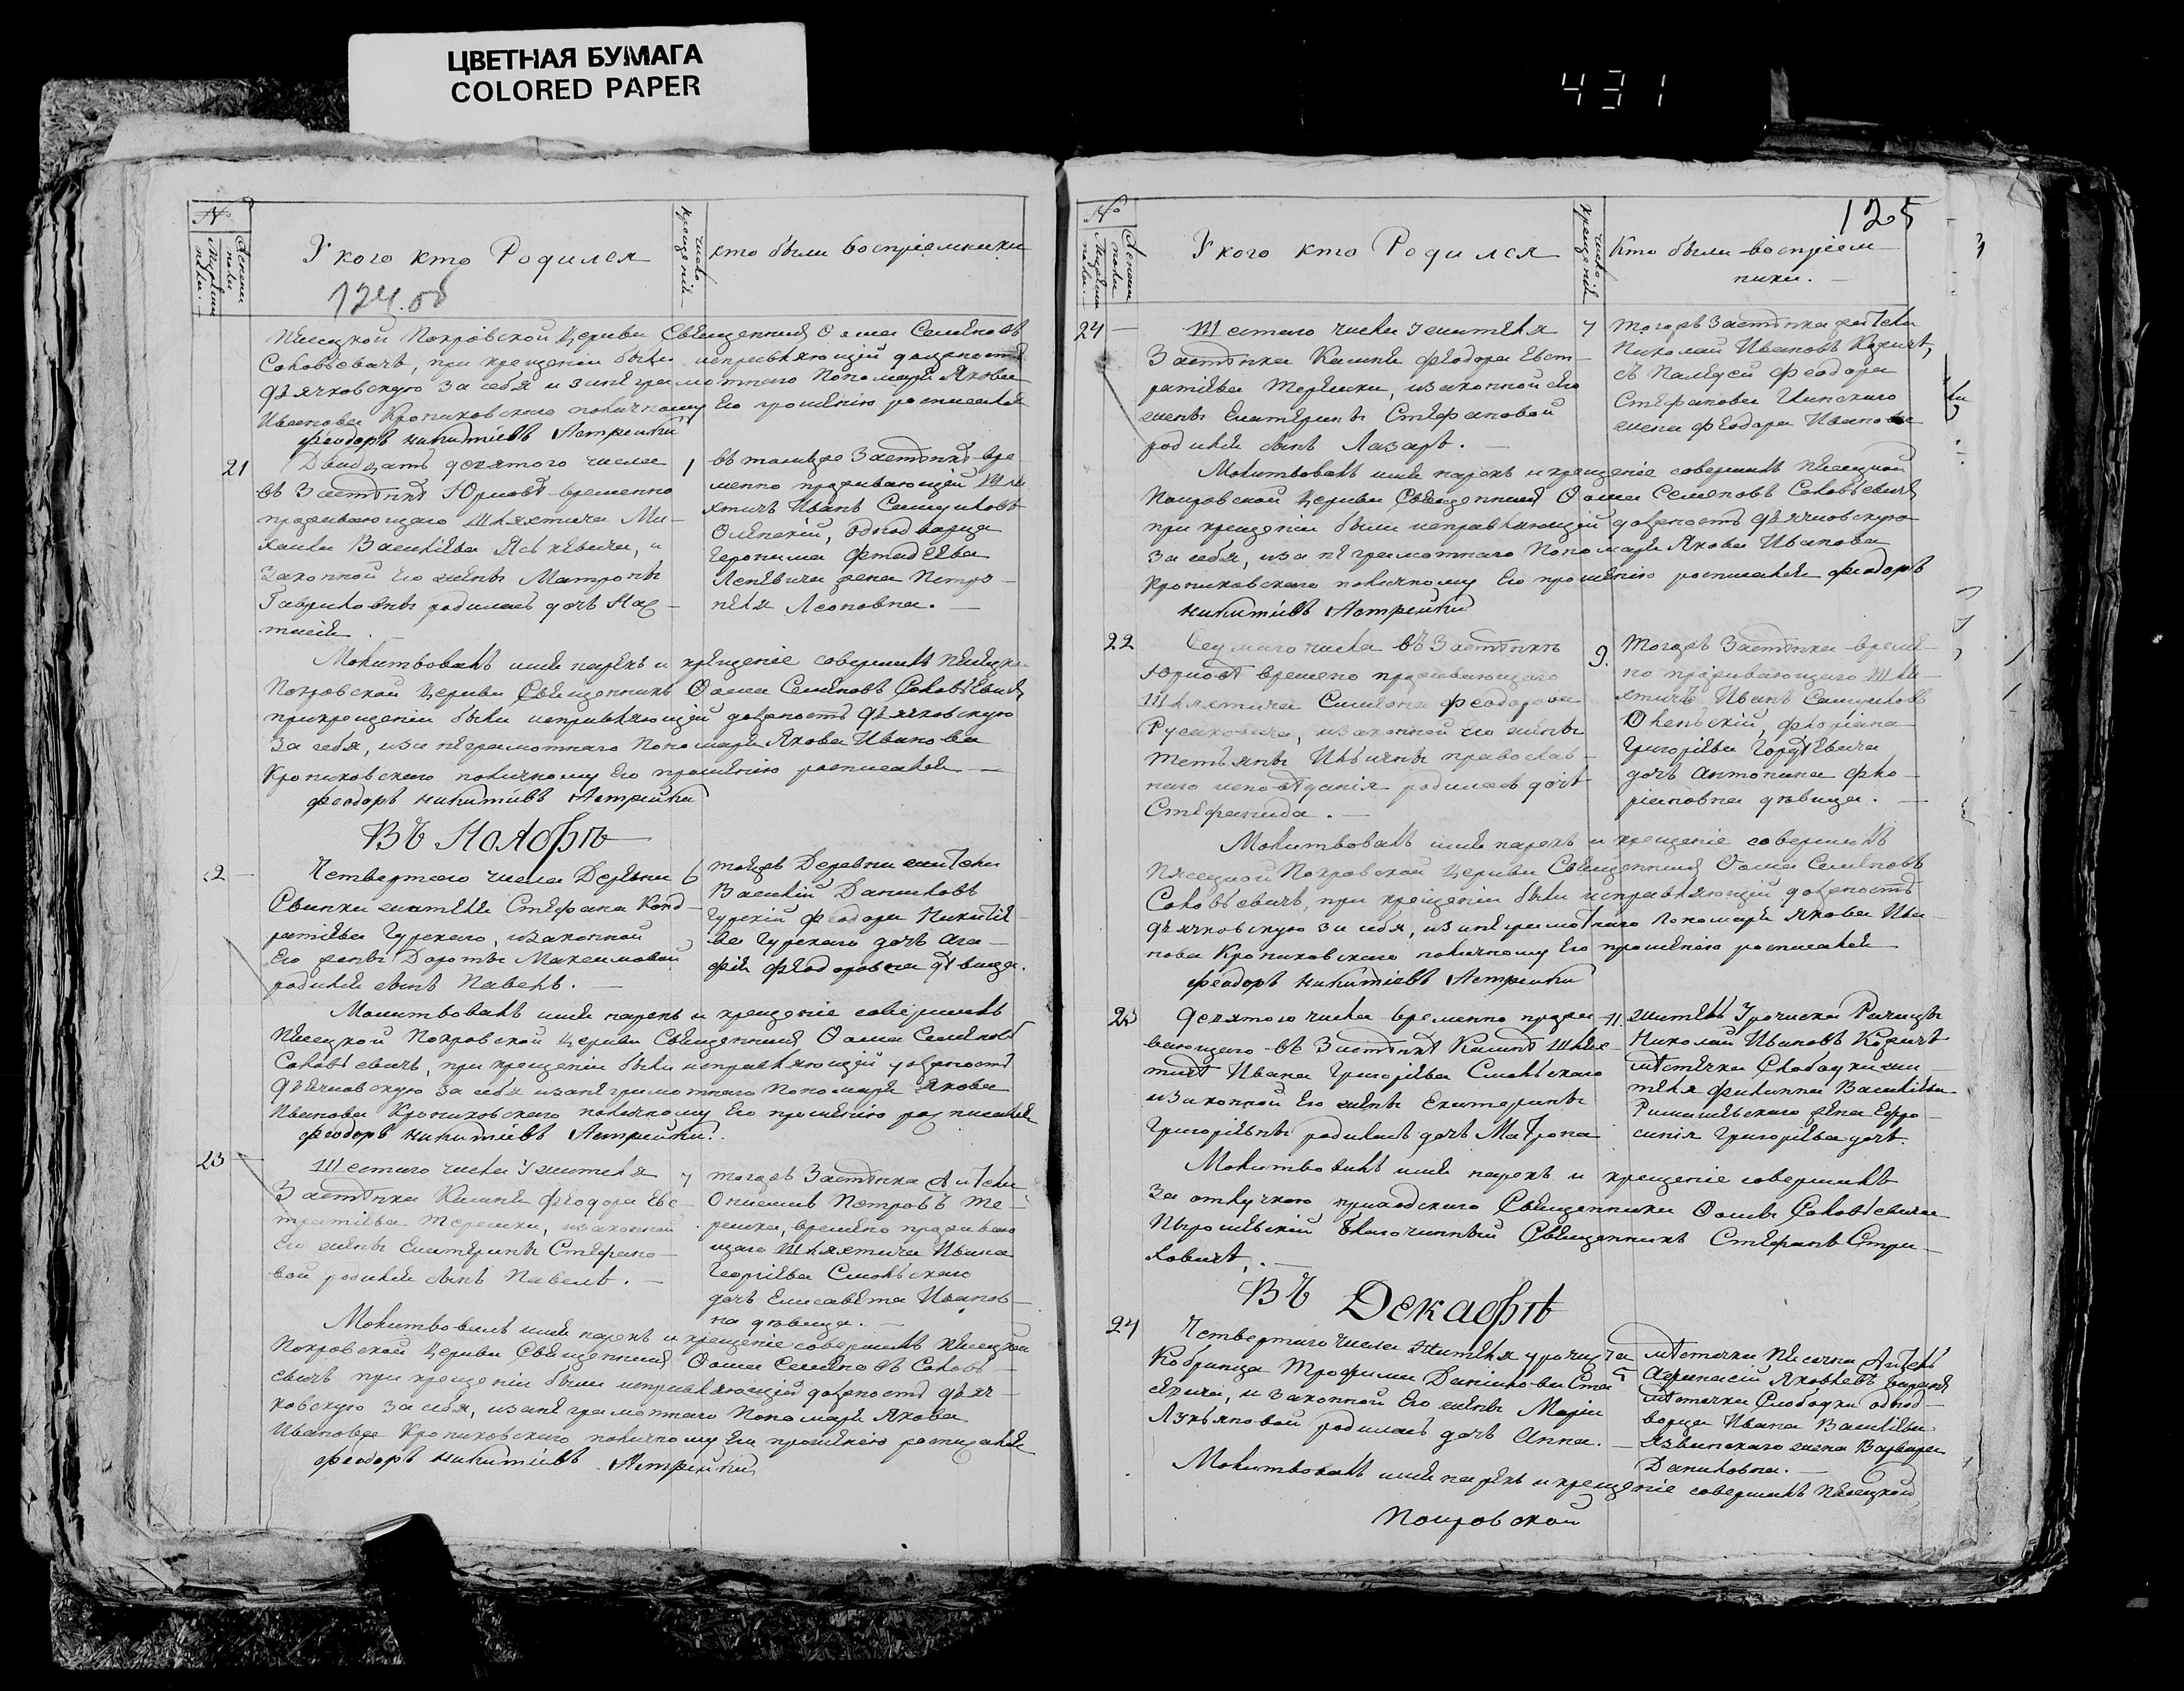 ЦВЕТНАЯ БУМАГА
COLORED PAPER
431
№
Женска полу
Мужеска полу
У кого кто Родился
число крещеній
кто были воспріемники
124.об
Покровской Церкви Священникъ Ѳома Семеновъ
Соловьевичъ, при крещеніи были исправляющій должность
дьячковскую за себя и за неграмотнаго Пономаря Якова
Иванова Кропиховскаго поличному Его прошенію росписался
Феодоръ Никитіевъ
21
Двадцать девятого числа
въ Застѣнкѣ Юрповѣ временно
проживающаго Шляхтича Ми-
хаила Василіева и
Законной Его жены Матроны
Гавриловны родилась дочь Нас-
тасія
1
Застѣнкѣ вре-
менно проживающій Шля-
хтичъ Иванъ
однодворца
Іеронима
жена Петро-
неля Леоновна.
Молитвовалъ имя нарекъ и крещеніе совершилъ
Покровской Церкви Священникъ Ѳома Семеновъ Соловьевичъ
при крещеніи были исправляющій должность дьячковскую
за себя, и за неграмотнаго Пономаря Якова Иванова
Кропиховскаго поличному Его прошенію росписался
Феодоръ Никитіевъ
Въ Ноябрѣ
22
Четвертаго числа Деревни
жителя Стефана Конд-
ратіева Гурскаго, и законной
Его жены Дороты Максимовой
родился сынъ Павелъ.
6
тойжъ Деревни житель
Василій Даниловъ
Гурскій Феодора Никитіе-
ва Гурскаго дочь Ага-
фія Феодоровна дѣвица.
Молитвовалъ имя нарекъ и крещеніе совершилъ
Покровской Церкви Священникъ Ѳома Семеновъ
Соловьевичъ, при крещеніи были исправляющій должность
Дьячковскую за себя и за неграмотнаго Пономаря Якова
Иванова Кропиховскаго поличному Его прошенію росписался
Феодоръ Никитіевъ
23
Шестаго числа У жителя
Застѣнка Калинъ Феодора Евс-
тратіева Терешки, и законной
Его жены Екатерины Стефано-
вой родился сынъ Павелъ.
7
тогожъ Застѣнка житель
Онисимъ Петровъ Те-
решка, времено проживаю-
щаго Шляхтича Ивана
Георгіева Смольскаго
дочь Елисавета Иванов-
на дѣвица.
Молитвовалъ имя нарекъ и крещеніе совершилъ
Покровской Церкви Священникъ Ѳома Семеновъ Соловь-
евичъ при крещеніи были исправляющій должность дьяч-
ковскую за себя, и за неграмотнаго Пономаря Якова
Иванова Кропиховскаго поличному Его прошенію росписался
Феодоръ Никитіевъ
125
№
Женска полу
Мужеска полу
У кого кто Родился
число крещеній
Кто были воспріем-
ники.
24
Шестаго числа У жителя
Застѣнка Калинъ Феодора Евст-
ратіева Терешки, и законной его
жены Екатерины Стефановой
родился сынъ Лазарь.
7
тогожъ Застѣнка житель
Николай Ивановъ
съ Феодора
Стефанова
жена Феодора Иванова
Молитвовалъ имя нарекъ и крещеніе совершилъ
Покровской Церкви Священникъ Ѳома Семеновъ Соловьевичъ
при крещеніи были исправляющій должность дьячковскую
за себя, и за неграмотнаго Пономаря Якова Иванова
Кропиховскаго поличному Его прошенію росписался Феодоръ
Никитіевъ
22
Седмаго числа въ Застѣнкѣ
Юрповѣ времено проживающаго
Шляхтича Симеона Феодорова
Русаковича, и законной его жены
Тетьяны Ильичны православ-
наго исповѣданія родилась дочь
Стефанида.
9.
тогожъ Застѣнка времен-
но проживающаго Шля-
хтичъ Иванъ
Флоріана
Григоріева
дочь Антонина Фло-
ріановна дѣвица.
Молитвовалъ имя нарекъ и крещеніе совершилъ
Покровской Церкви Священникъ Ѳома Семеновъ
Соловьевичъ, при крещеніи были исправляющій должность
дьячковскую за себя, и за неграмотнаго Пономаря Якова Ива-
нова Кропиховскаго поличному Его прошенію росписался
Феодоръ Никитіевъ
23
Девятого числа временно прожи-
вающаго въ Застѣнкѣ Калинѣ Шлях-
тича Ивана Григоріева Смольскаго
и законной Его жены Екатерины
Григоріевны родилась дочь Матрона
11.
житель Урочиска Речицы
Николай Ивановъ
мѣстечка Слободки жи-
теля Филиппа Василіева
жена Ефро-
синія Григоріева дочь.
Молитвовалъ имя нарекъ и крещеніе совершилъ
За отлучкою приходскаго Священника Ѳомы Соловьевича
Благочинный Священникъ Стефанъ
Въ Декабрѣ
24
Четвертаго числа Жителя урочища
Кобринца Трофима Даніилова
и законной Его жены Маріи
Лукьяновой родилась дочь Анна.
мѣстечка житель
Афанасій Яковлевъ
мѣстечка Слободки однод-
ворца Ивана Василіева
Язвинскаго жена Варвара
Даниловна.
Молитвовалъ имя нарекъ и крещеніе совершилъ
Покровской